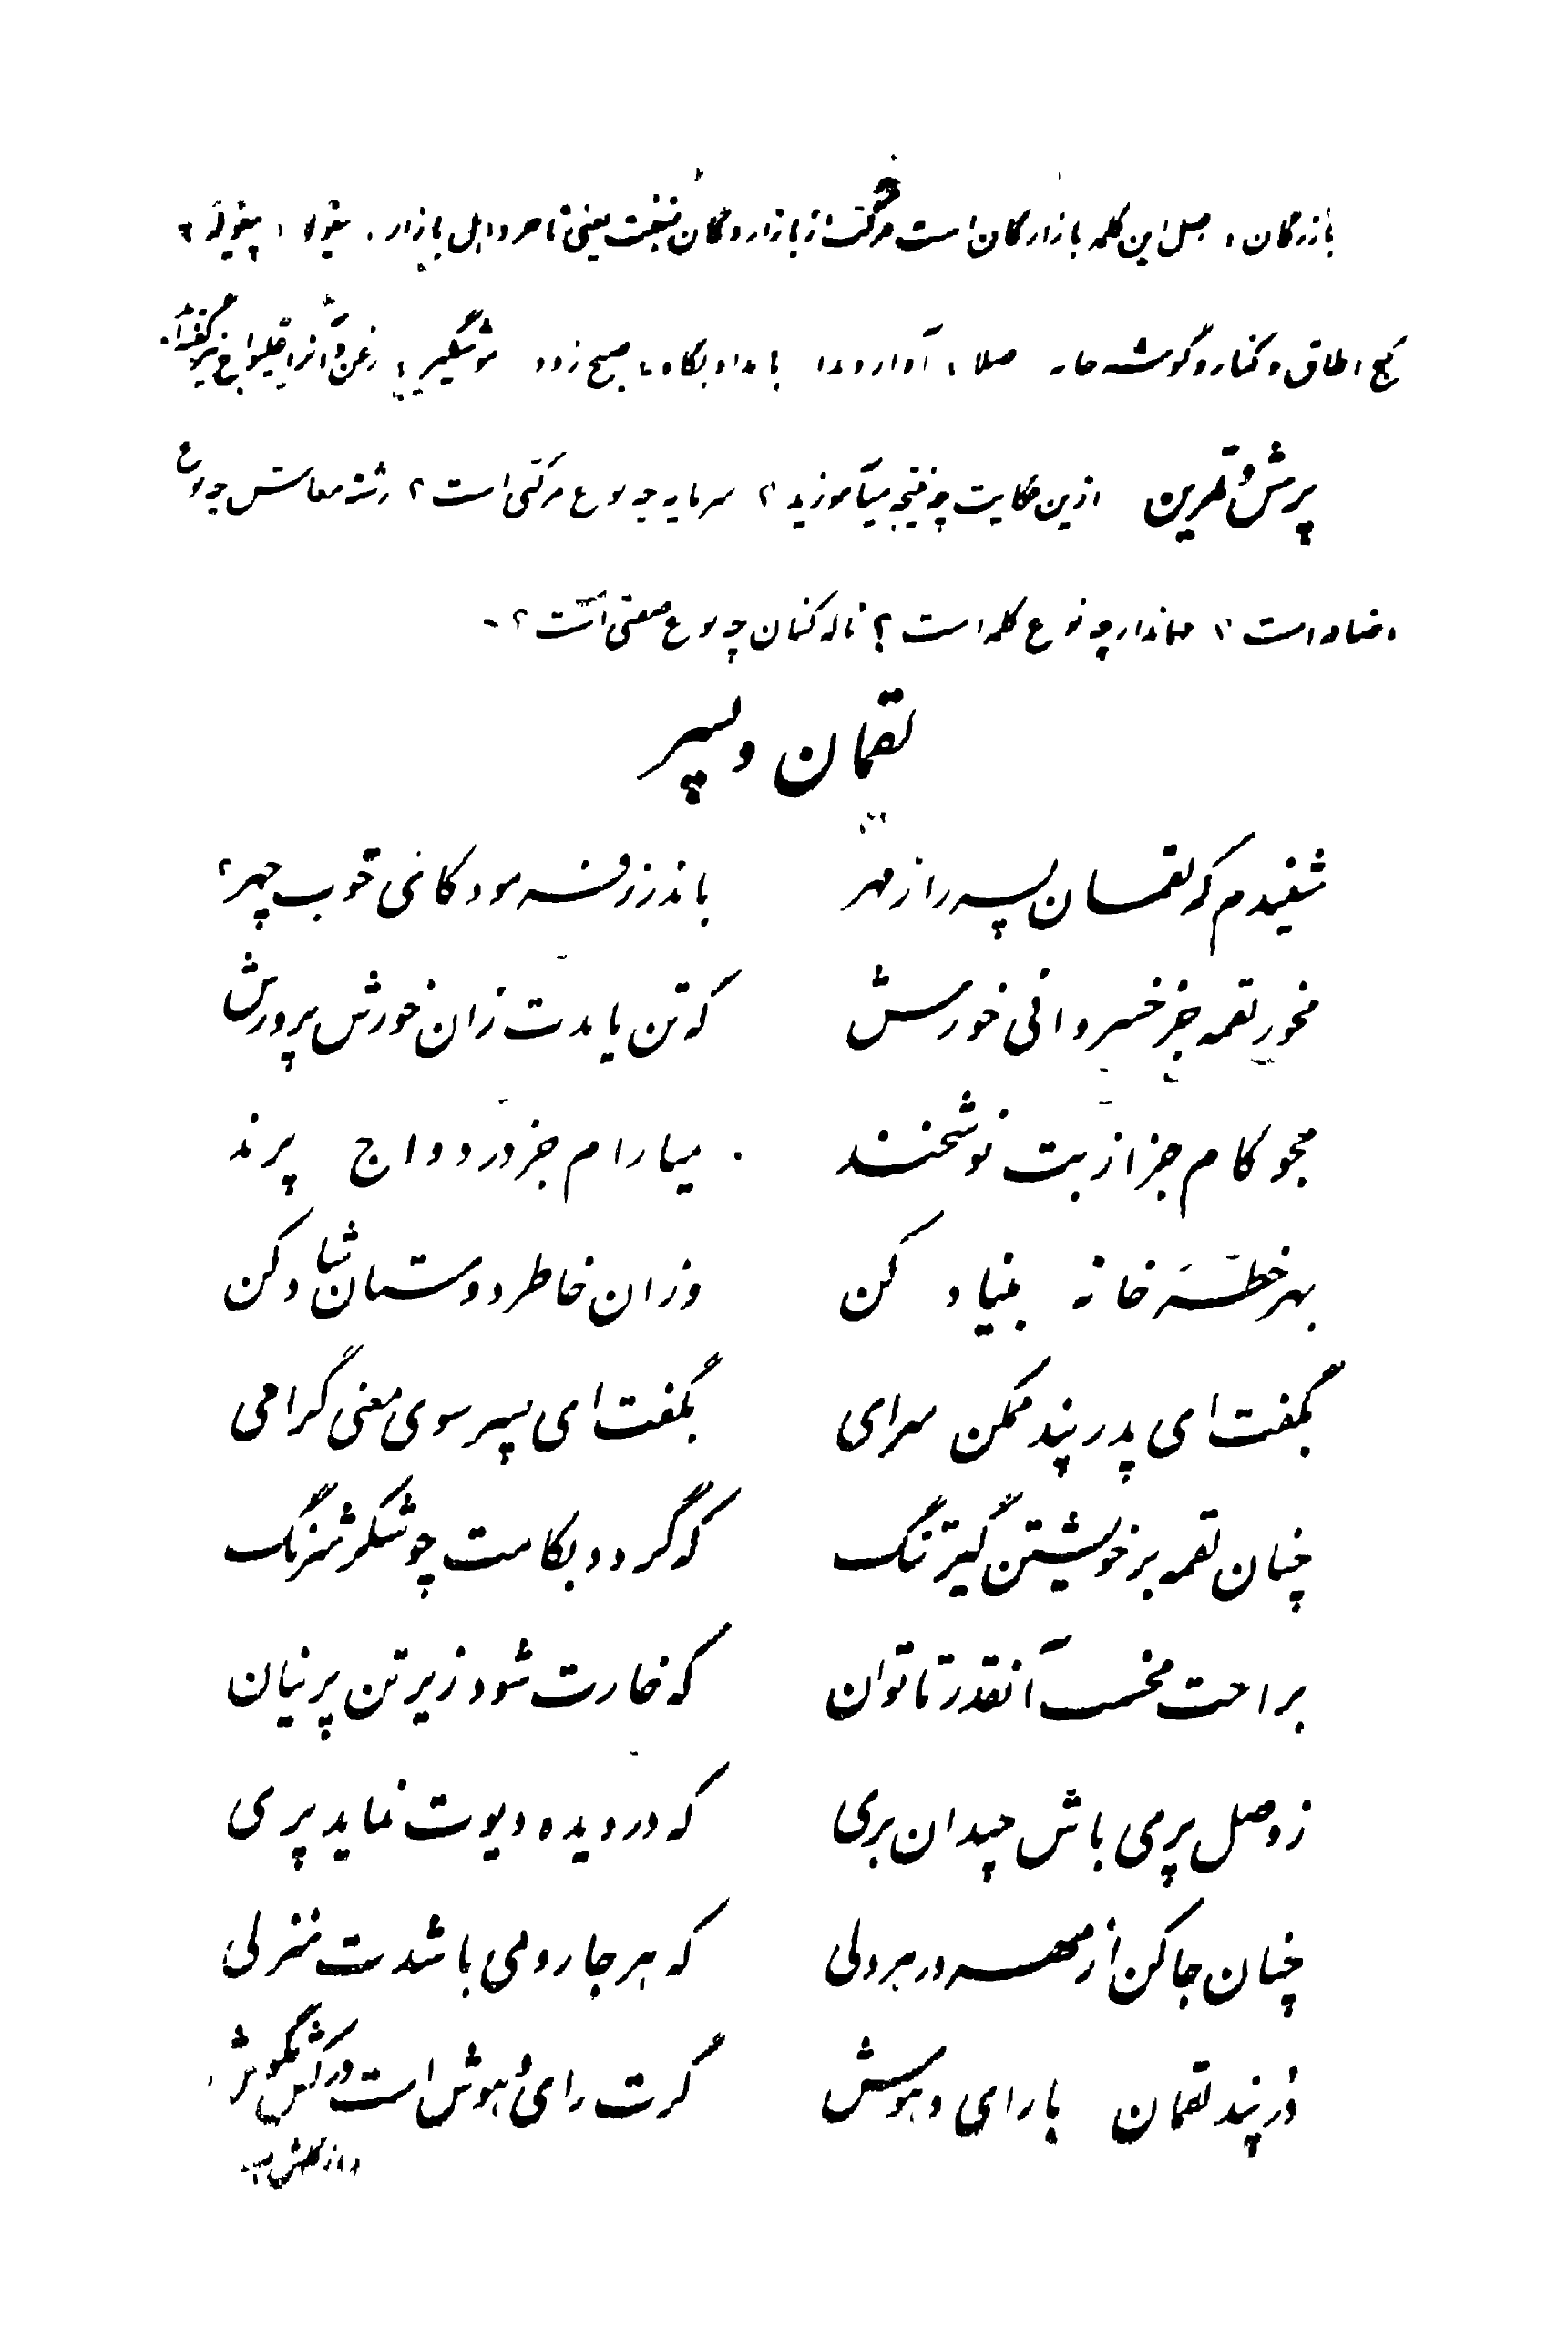 بازرگان، اصل این کلمه بازارگان است مرکب از بازار و گان نسبت یعنی تاجر و اهل بازار. بیغوله، پیغوله،
کنج اطاق و کنار و گوشه خانه صلا، آواز و ندا بامداد پگاه، صبح زود موشگیر، زغن و آنرا غلیواج نیز گفته‌اند.
پرسش و تمرین ازین حکایت چه نتیجه میآموزید؟ سرمایه چه نوع مرکبی است؟ رشته معاش چه نوع
اضافه است؟ جاندار چه نوع کلمه است؟ ناله کنان چه نوع صفتی است؟
لقمان و پسر
شنیدم که لقمان پسر را ز مهر باندرز فرمود کای خوب چهر
مخور لقمه جز خسروانی خورش که تن یابدت زان خورش پرورش
مجو کام جز از بت نوشخند میارام جز در دواج پرند
بهر خطه خانه بنیاد کن وزان خاطر دوستان شاد کن
بگفت ای پدر پند ممکن سرای بگفت ای پسر سوی معنی گرای
چنان لقمه بر خویشتن گیر تنگ که گردد بکامت چو شکر شرنگ
براحت مخسب آنقدر تا توان که خارت شود زیر تن پرنیان
ز وصل پری باش چندان بری که در دیده دیوت نماید پری
چنان جا کن از مهر در هر دلی که هر جا روی باشدت منزلی
در پند لقمان با رای و هوش گرت رای و هوش است درکش بگوش